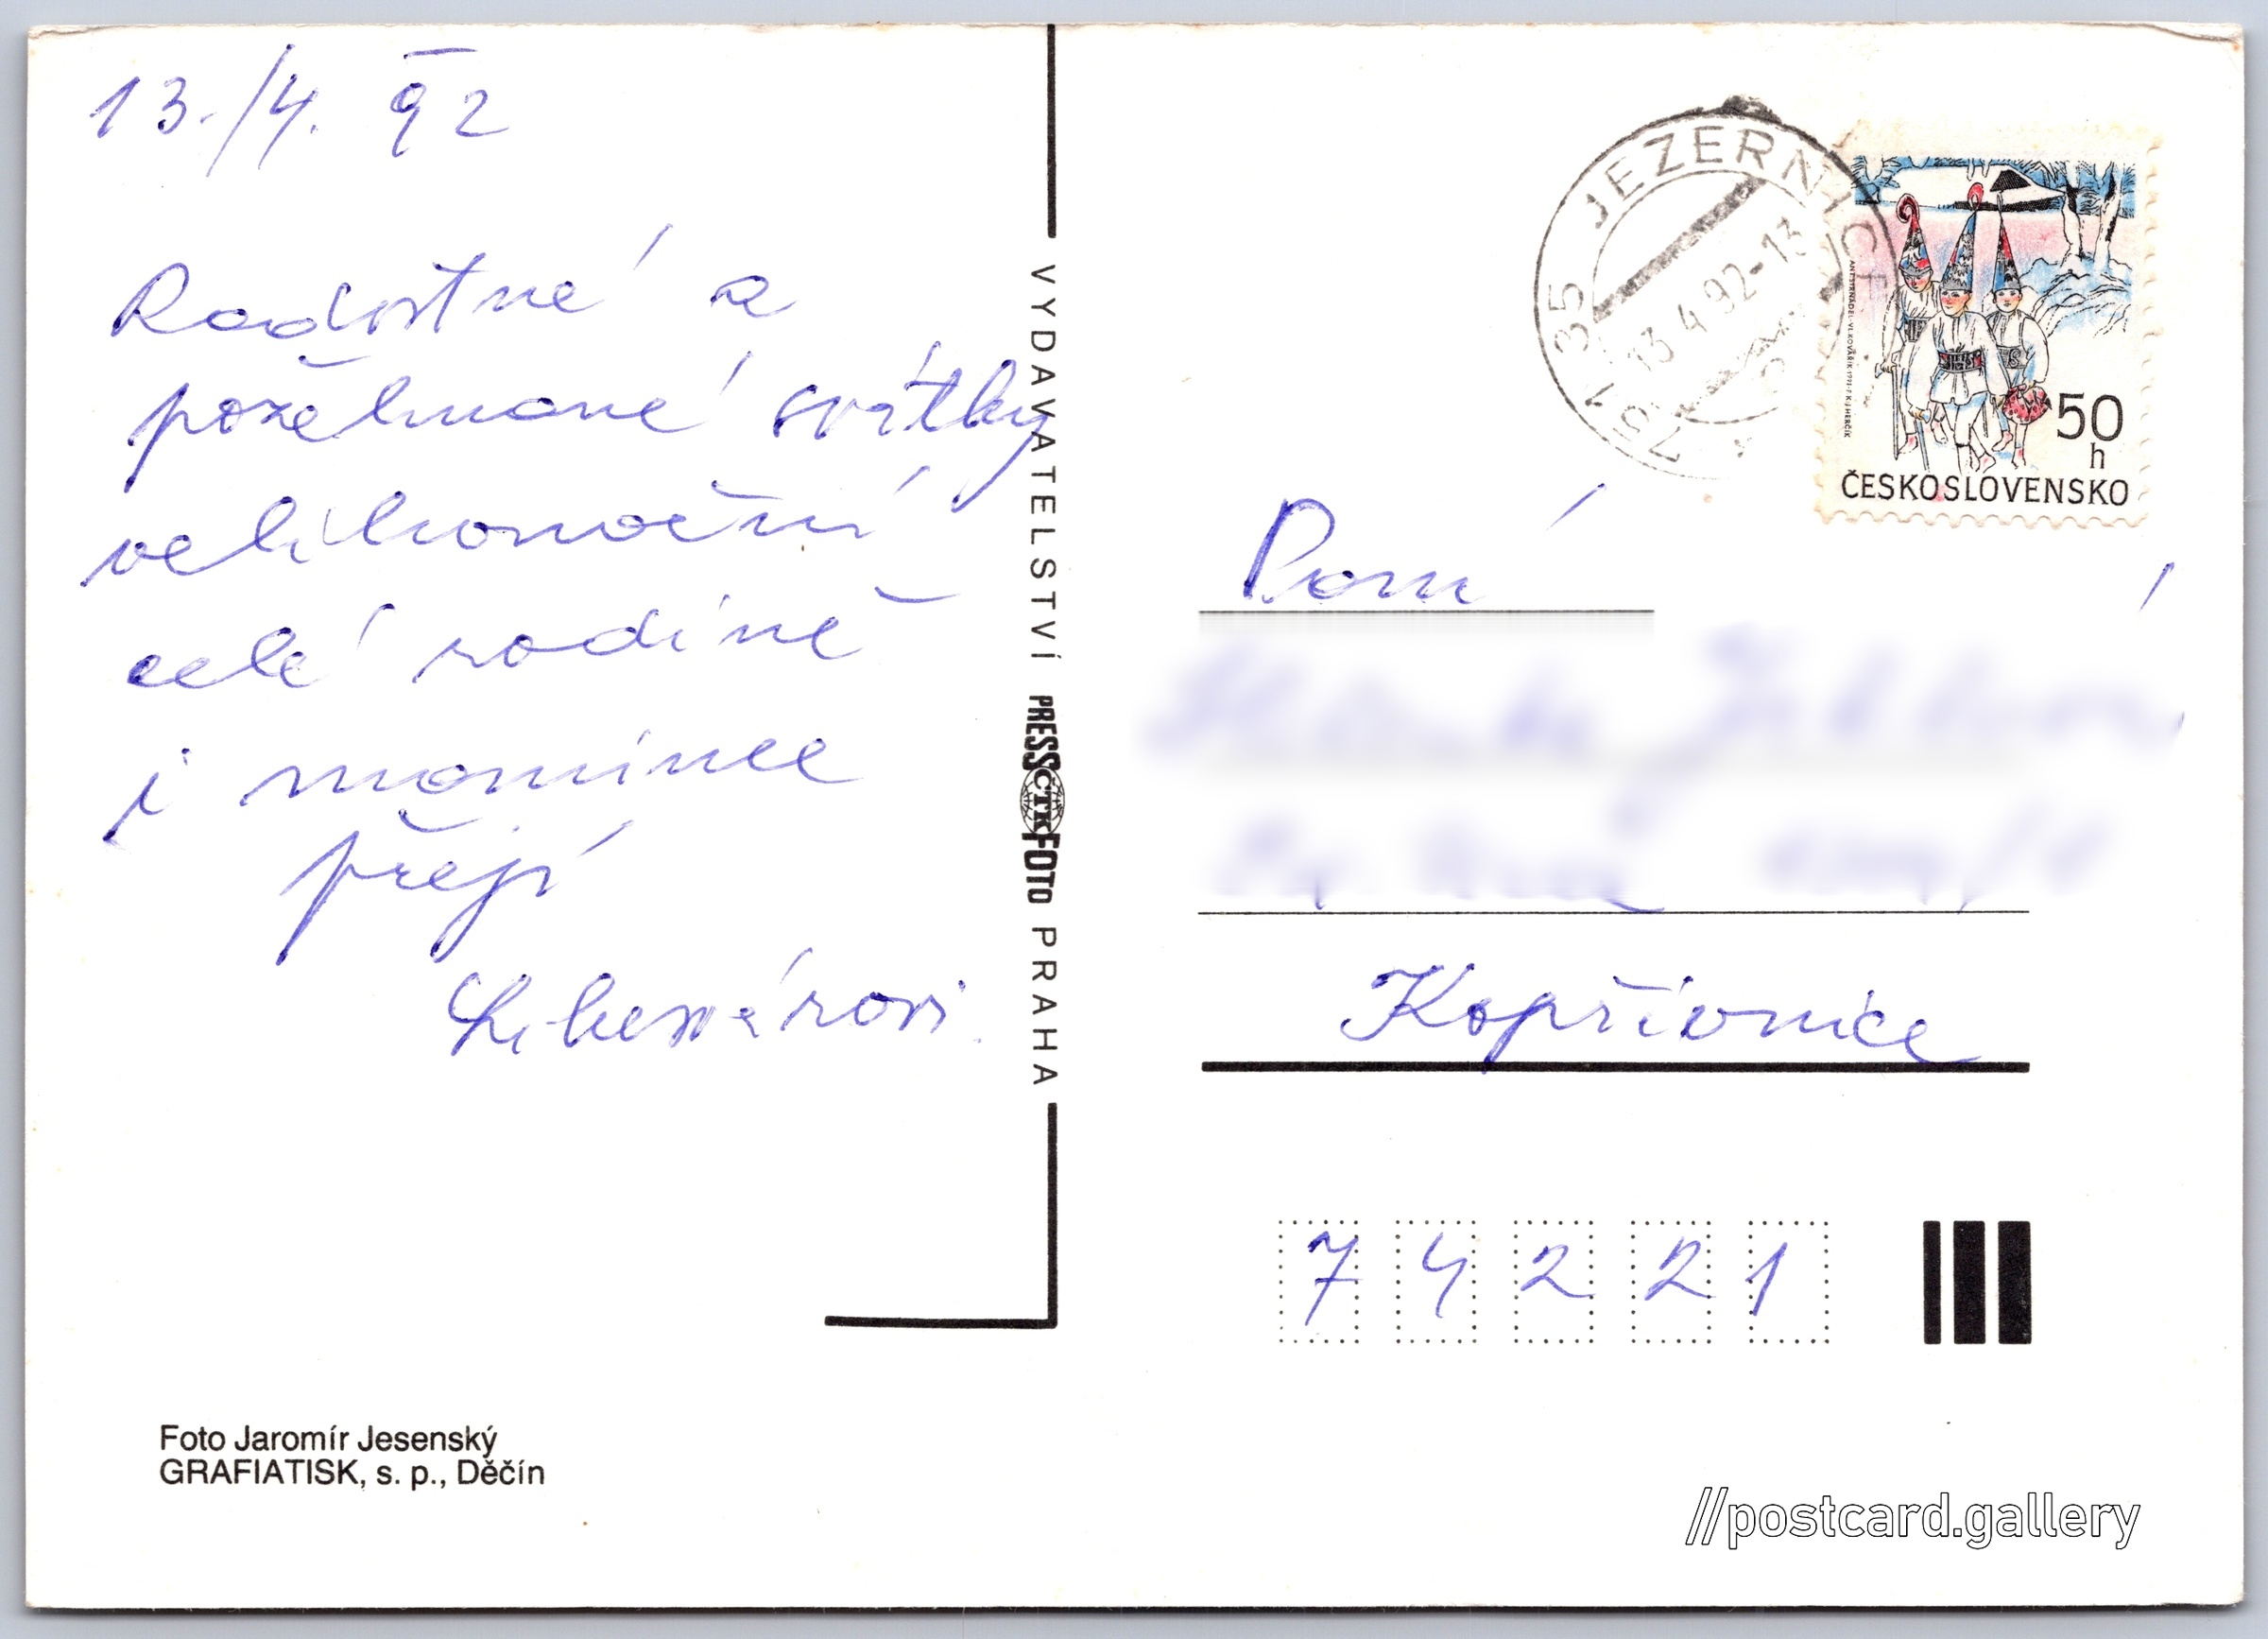 13./4. 92
Radostné a
požehnané svátky
velikonoční
celé rodině
i mamince
přejí
VYDAVATELSTVÍ PRESSFOTO PRAHA
ČTK
751 35 JEZERNICE
13.4.92-13
50
h
ČESKOSLOVENSKO
Paní
Kopřivnice
74221
Foto Jaromír Jesenský
GRAFIATISK, s. p., Děčín
//postcard.gallery